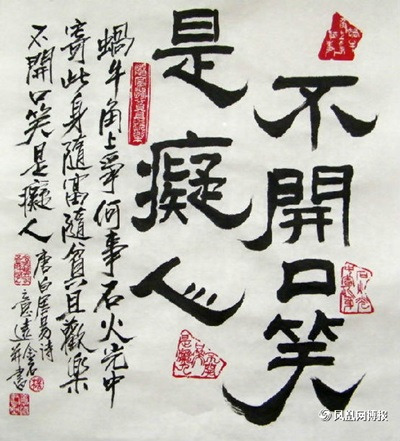 不開口笑
是癡人
蝸牛角上爭何事石火光中
寄此身隨富隨貧且歡樂
不開口笑是癡人
唐白居易詩
意遠
凤凰网博报